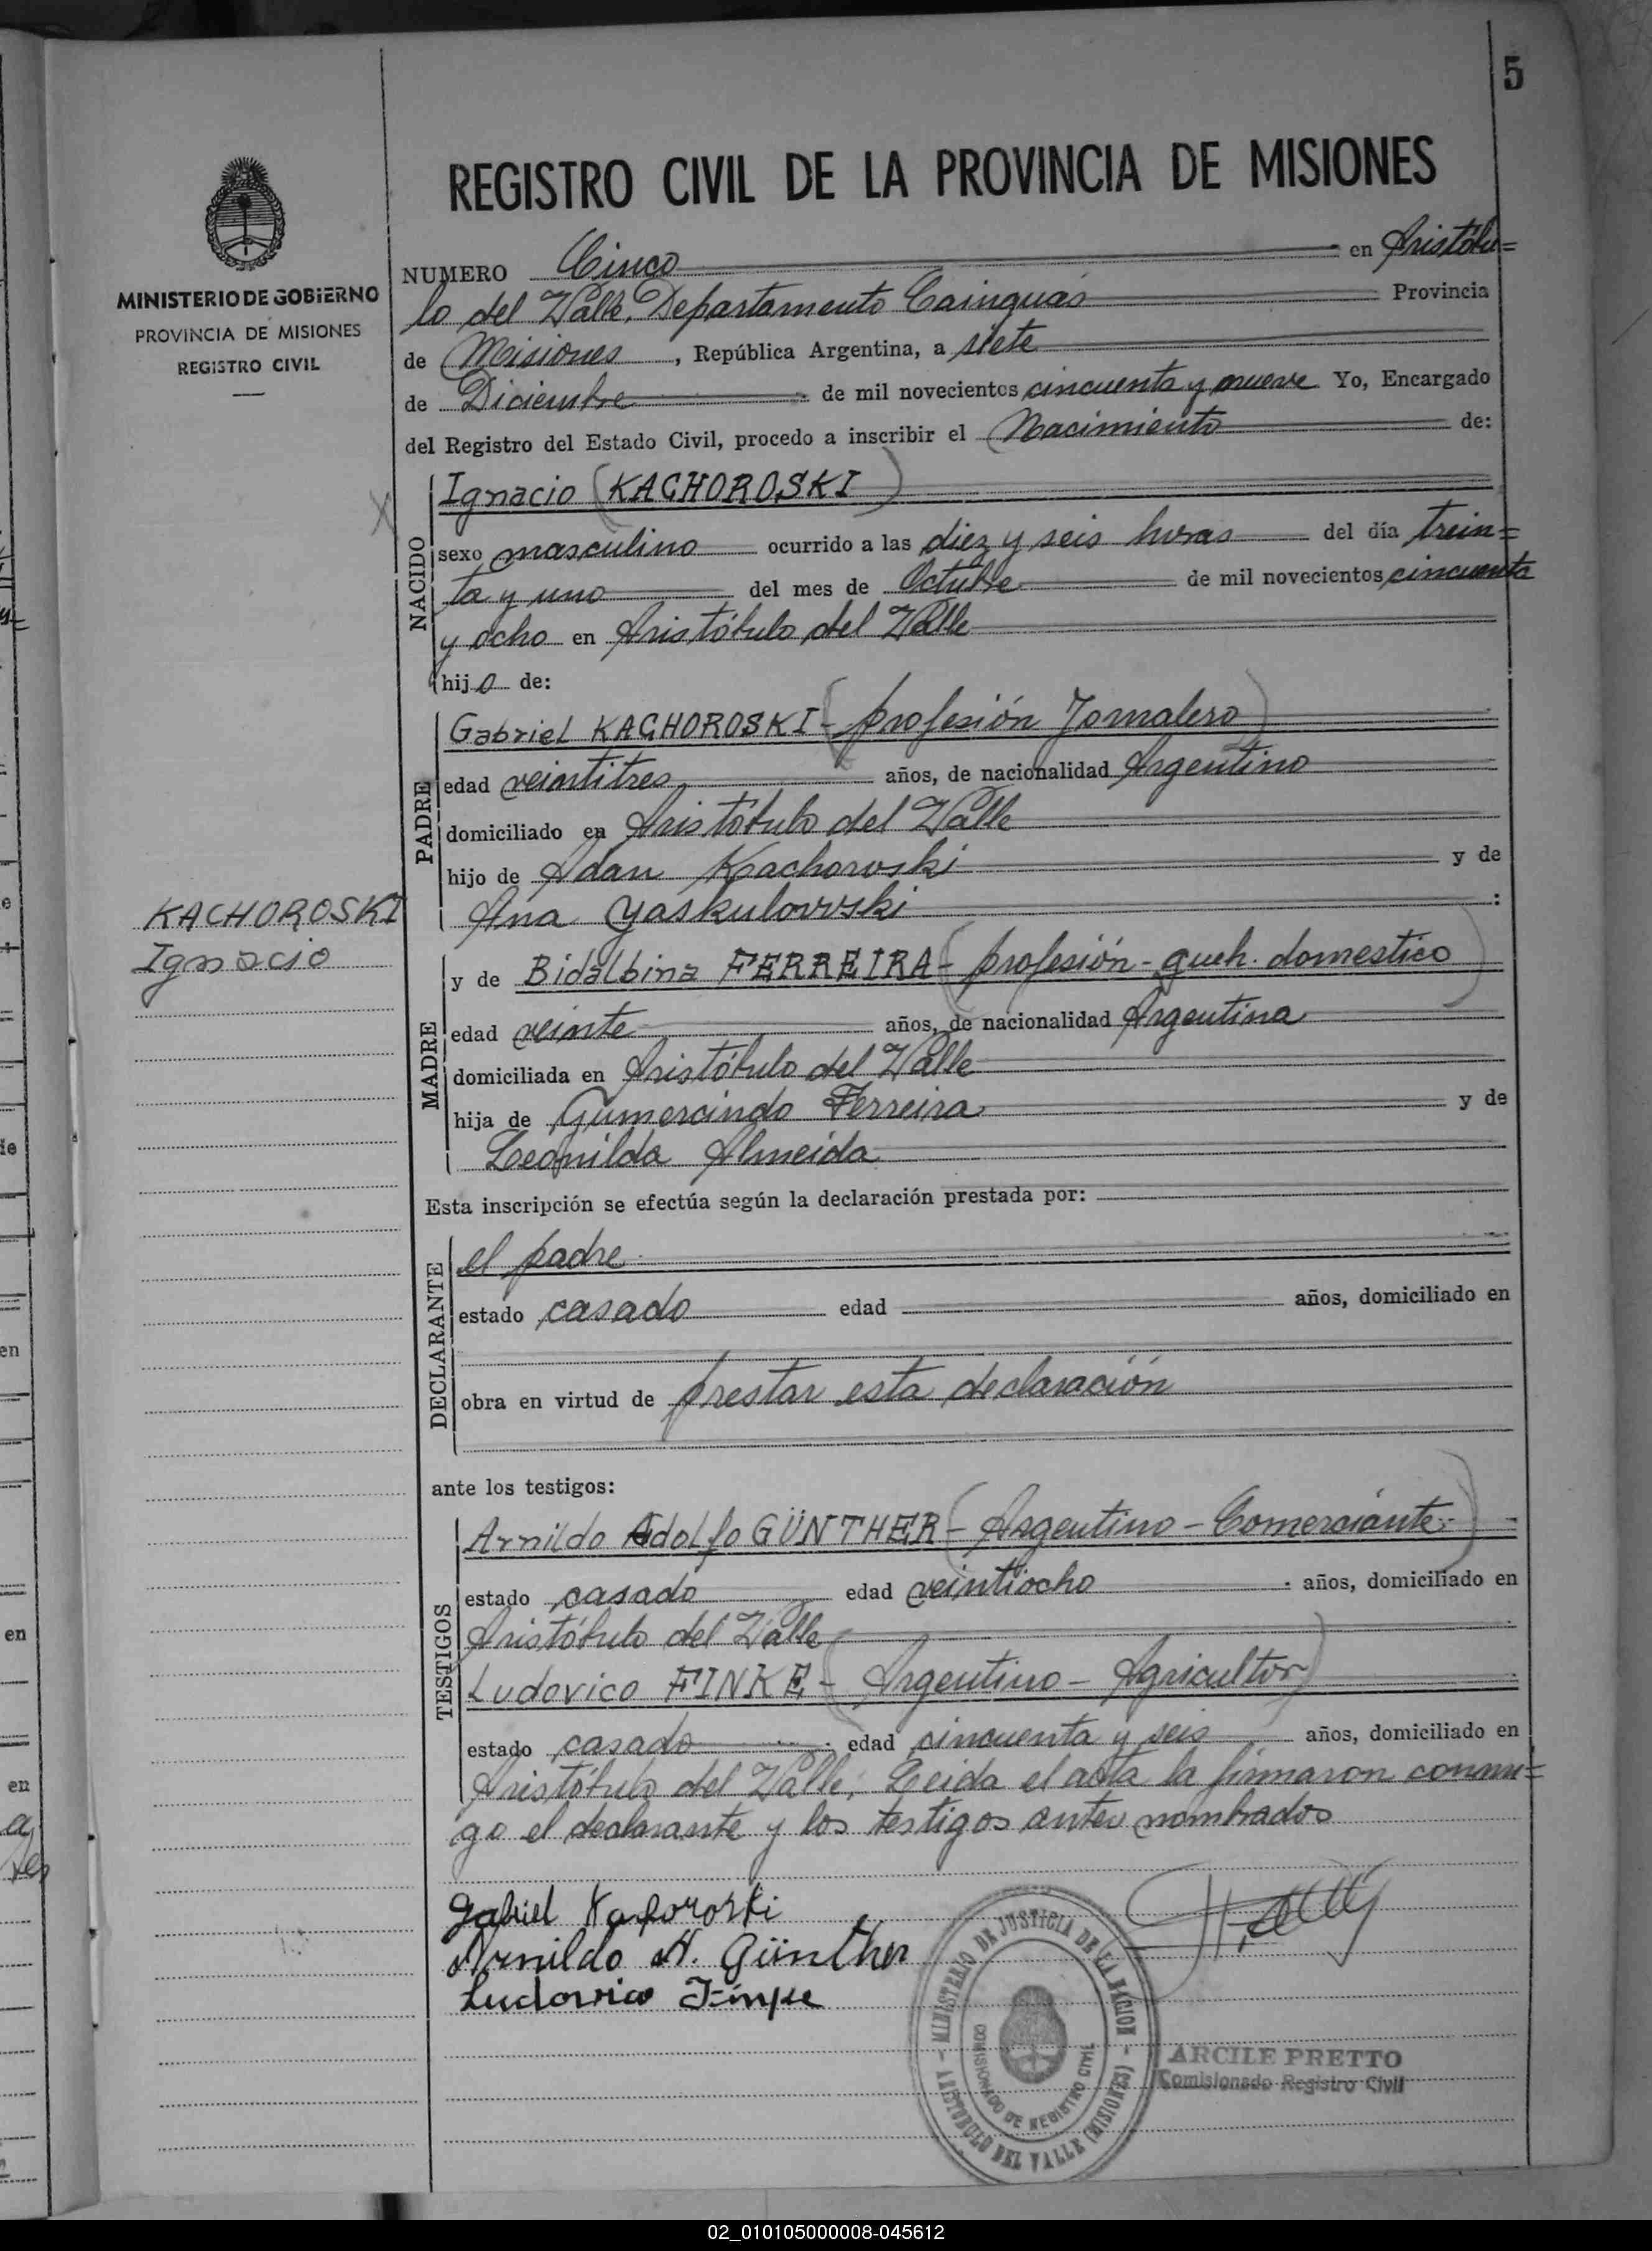 5
REGISTRO CIVIL DE LA PROVINCIA DE MISIONES
MINISTERIO DE GOBIERNO
PROVINCIA DE MISIONES
REGISTRO CIVIL
NUMERO Cinco en Aristóbu=
lo del Valle, Departamento Cainguás Provincia
de Misiones, República Argentina, a siete
de Diciembre de mil novecientos cincuenta y nueve Yo, Encargado
del Registro del Estado Civil, procedo a inscribir el Nacimiento de:
NACIDO
Ignacio (KACHOROSKI)
sexo masculino ocurrido a las diez y seis horas del día trein=
ta y uno del mes de Octubre de mil novecientos cincuenta
y ocho en Aristóbulo del Valle
hijo de:
PADRE
Gabriel KACHOROSKI - (profesión Jornalero)
edad veintitres años, de nacionalidad Argentino
domiciliado en Aristóbulo del Valle
hijo de Adan Kachoroski y de
Ana Yaskulowski :
KACHOROSKI
Ignacio
MADRE
y de Bidalbina FERREIRA - (profesión - queh. domestico)
edad veinte años, de nacionalidad Argentina
domiciliada en Aristóbulo del Valle
hija de Gumercindo Ferreira y de
Leonilda Almeida
Esta inscripción se efectúa según la declaración prestada por:
DECLARANTE
el padre
estado casado edad años, domiciliado en
obra en virtud de prestar esta declaración
ante los testigos:
TESTIGOS
Arnildo Adolfo GÜNTHER - (Argentino - Comerciante)
estado casado edad veintiocho años, domiciliado en
Aristóbulo del Valle
Ludovico FINKE - (Argentino - Agricultor)
estado casado edad cincuenta y seis años, domiciliado en
Aristóbulo del Valle; Leida el acta la firmaron conmi=
go el declarante y los testigos antes nombrados
Gabriel Kaforoski
Arnildo A. Günther
Ludovico Finke
MINISTERIO DE JUSTICIA DE LA NACION
COMISIONADO DE REGISTRO CIVIL
ARISTOBULO DEL VALLE (MISIONES)
ARCILE PRETTO
Comisionado Registro Civil
02_010105000008-045612